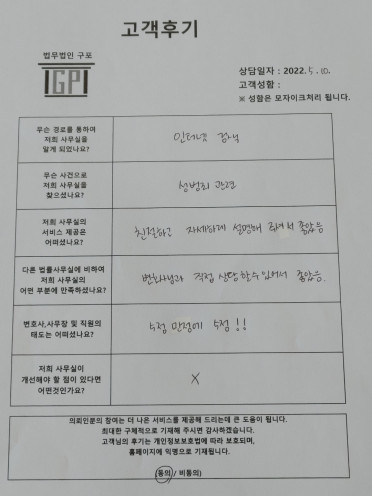 고객후기
법무법인 구포
GPI
상담일자 : 2022. 5. 10.
고객성함 :
※ 성함은 모자이크처리 됩니다.
무슨 경로를 통하여
저희 사무실을
알게 되었나요?
인터넷 검색
무슨 사건으로
저희 사무실을
찾으셨나요?
성범죄 관련
저희 사무실의
서비스 제공은
어떠셨나요?
친절하고 자세하게 설명해 주셔서 좋았음
다른 법률사무실에 비하여
저희 사무실의
어떤 부분에 만족하셨나요?
변호사님과 직접 상담할 수 있어서 좋았음.
변호사,사무장 및 직원의
태도는 어떠셨나요?
5점 만점에 5점 !!
저희 사무실이
개선해야 할 점이 있다면
어떤것인가요?
X
의뢰인분의 참여는 더 나은 서비스를 제공해 드리는데 큰 도움이 됩니다.
최대한 구체적으로 기재해 주시면 감사하겠습니다.
고객님의 후기는 개인정보보호법에 따라 보호되며,
홈페이지에 익명으로 기재됩니다.
(동의 / 비동의)